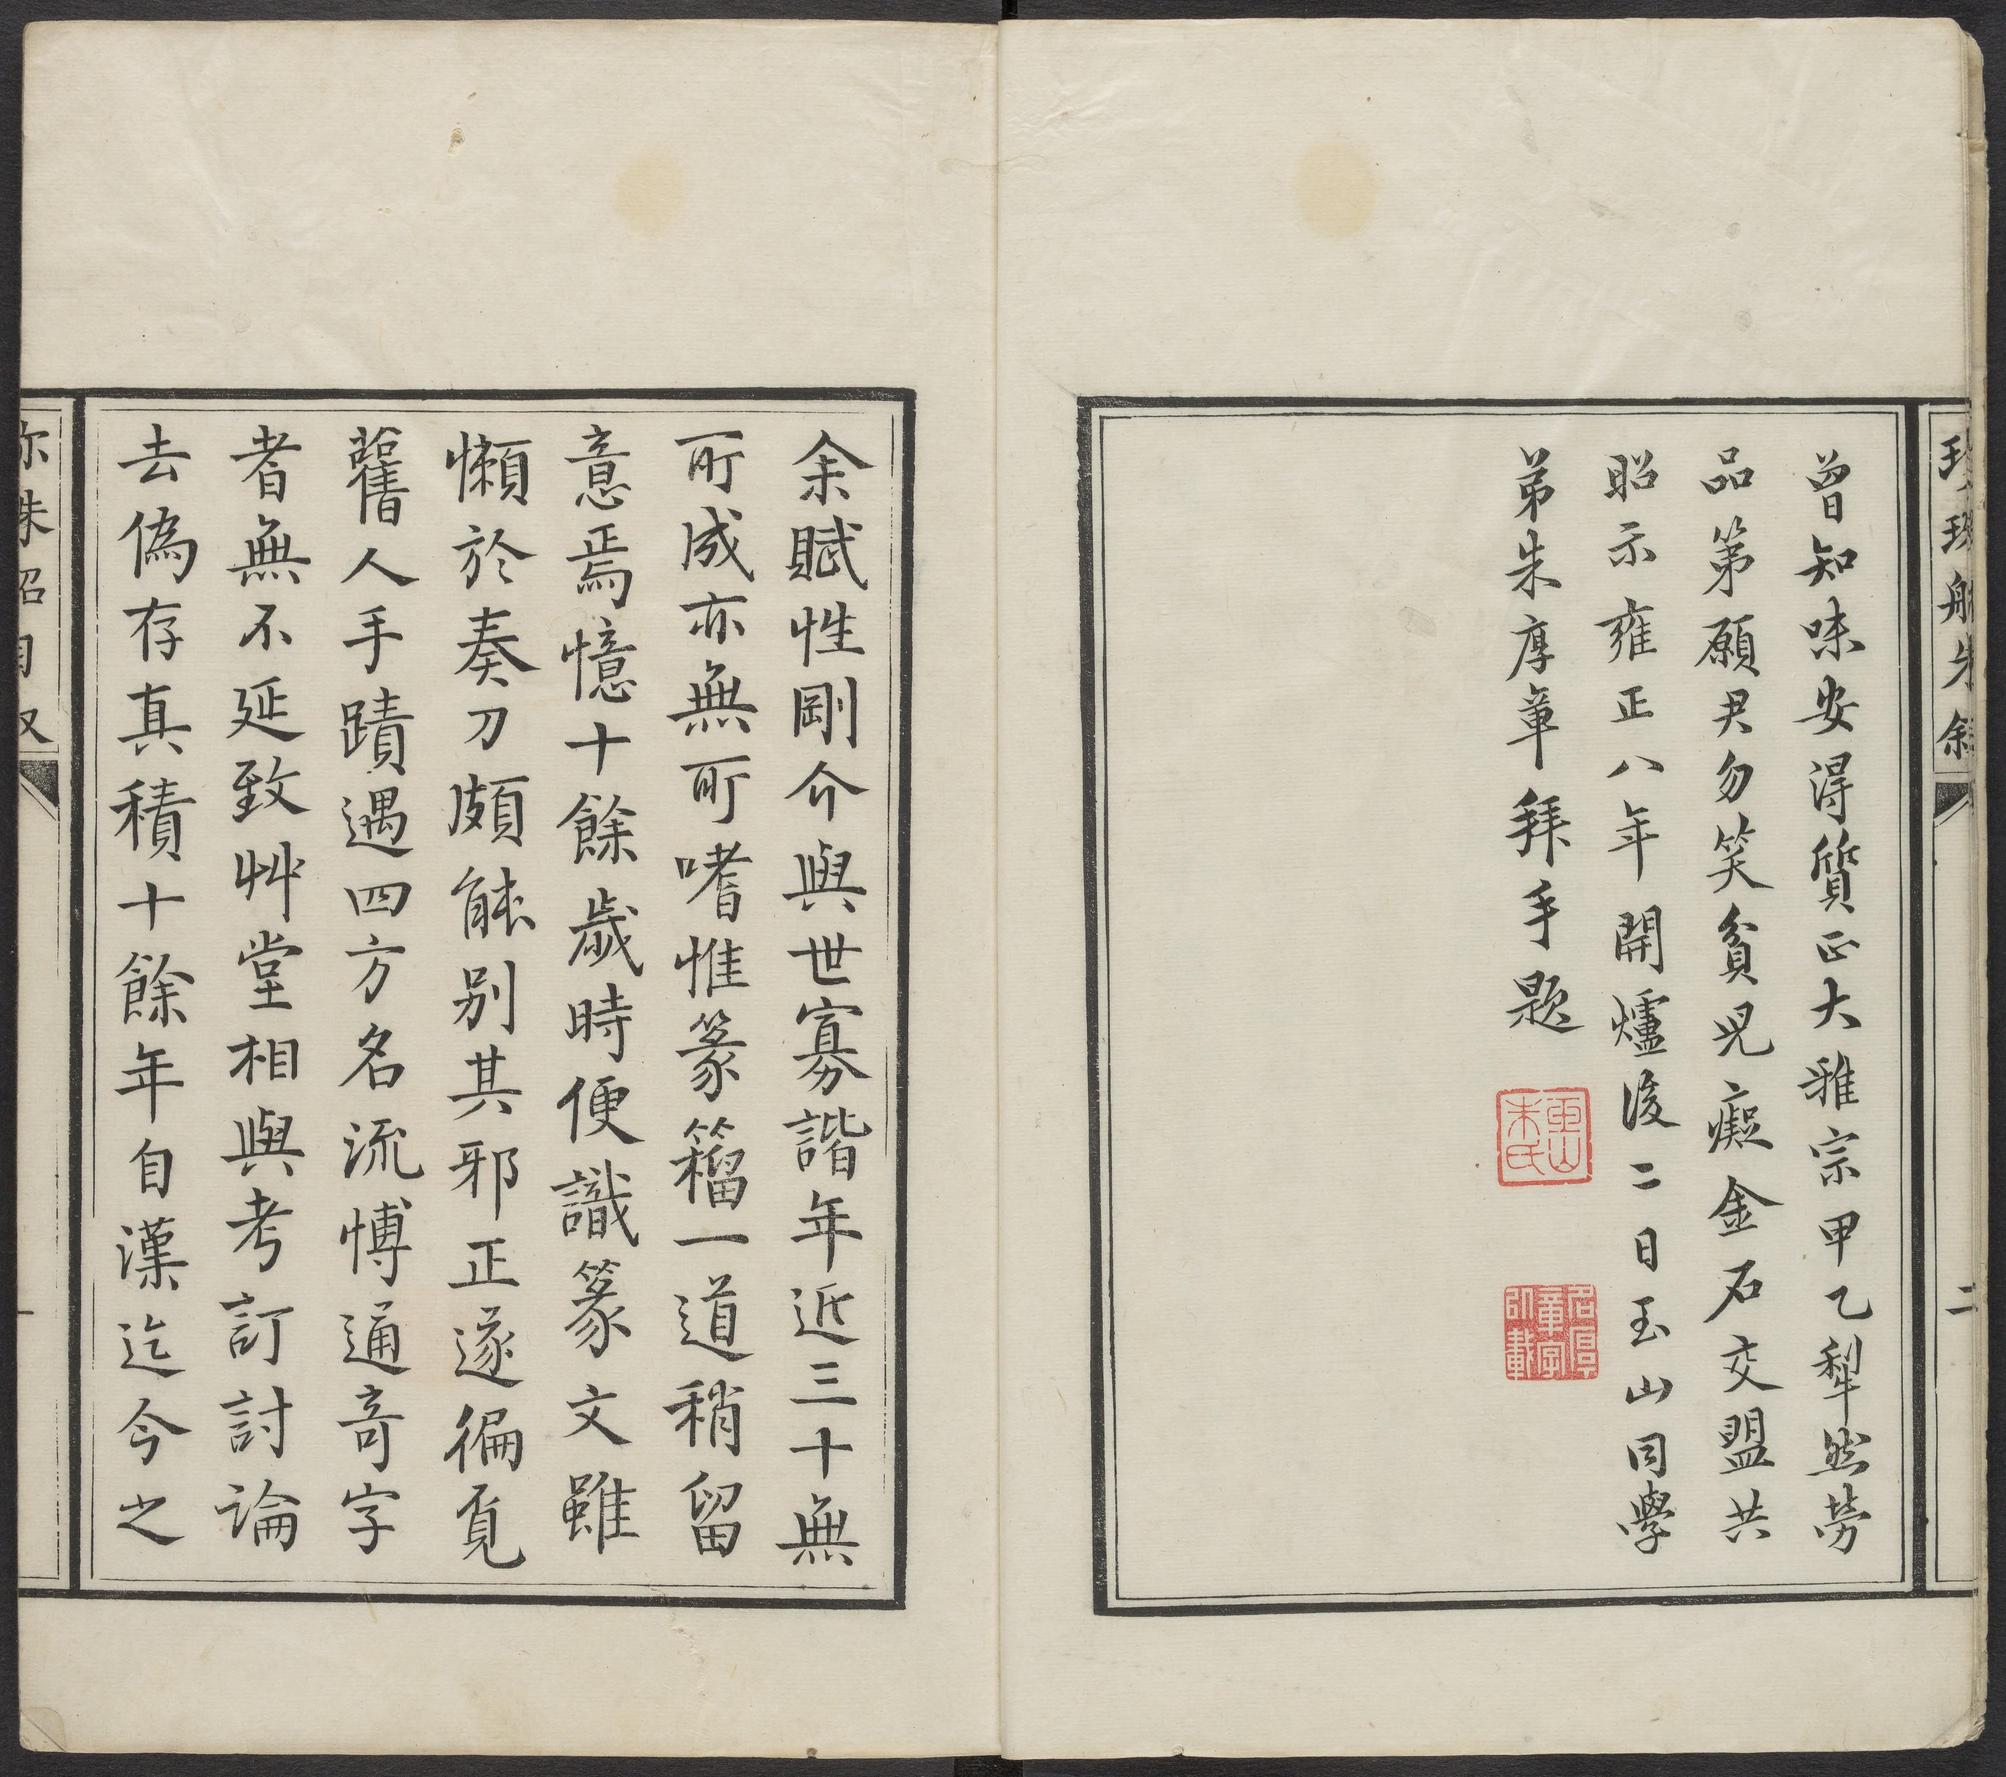 曾知味安得質正大雅宗甲乙犁然勞
品第願君勿笑貧兒癡金石交盟共
昭示雍正八年開爐後二日玉山同學
弟朱厚章拜手題
玉山朱氏
名厚章字以載
余賦性剛介與世寡諧年近三十無
所成亦無所嗜惟篆籀一道稍留
意焉憶十餘歲時便識篆文雖
懶於奏刀頗能別其邪正遂徧覓
舊人手蹟遇四方名流博通奇字
者無不延致艸堂相與考訂討論
去偽存真積十餘年自漢迄今之